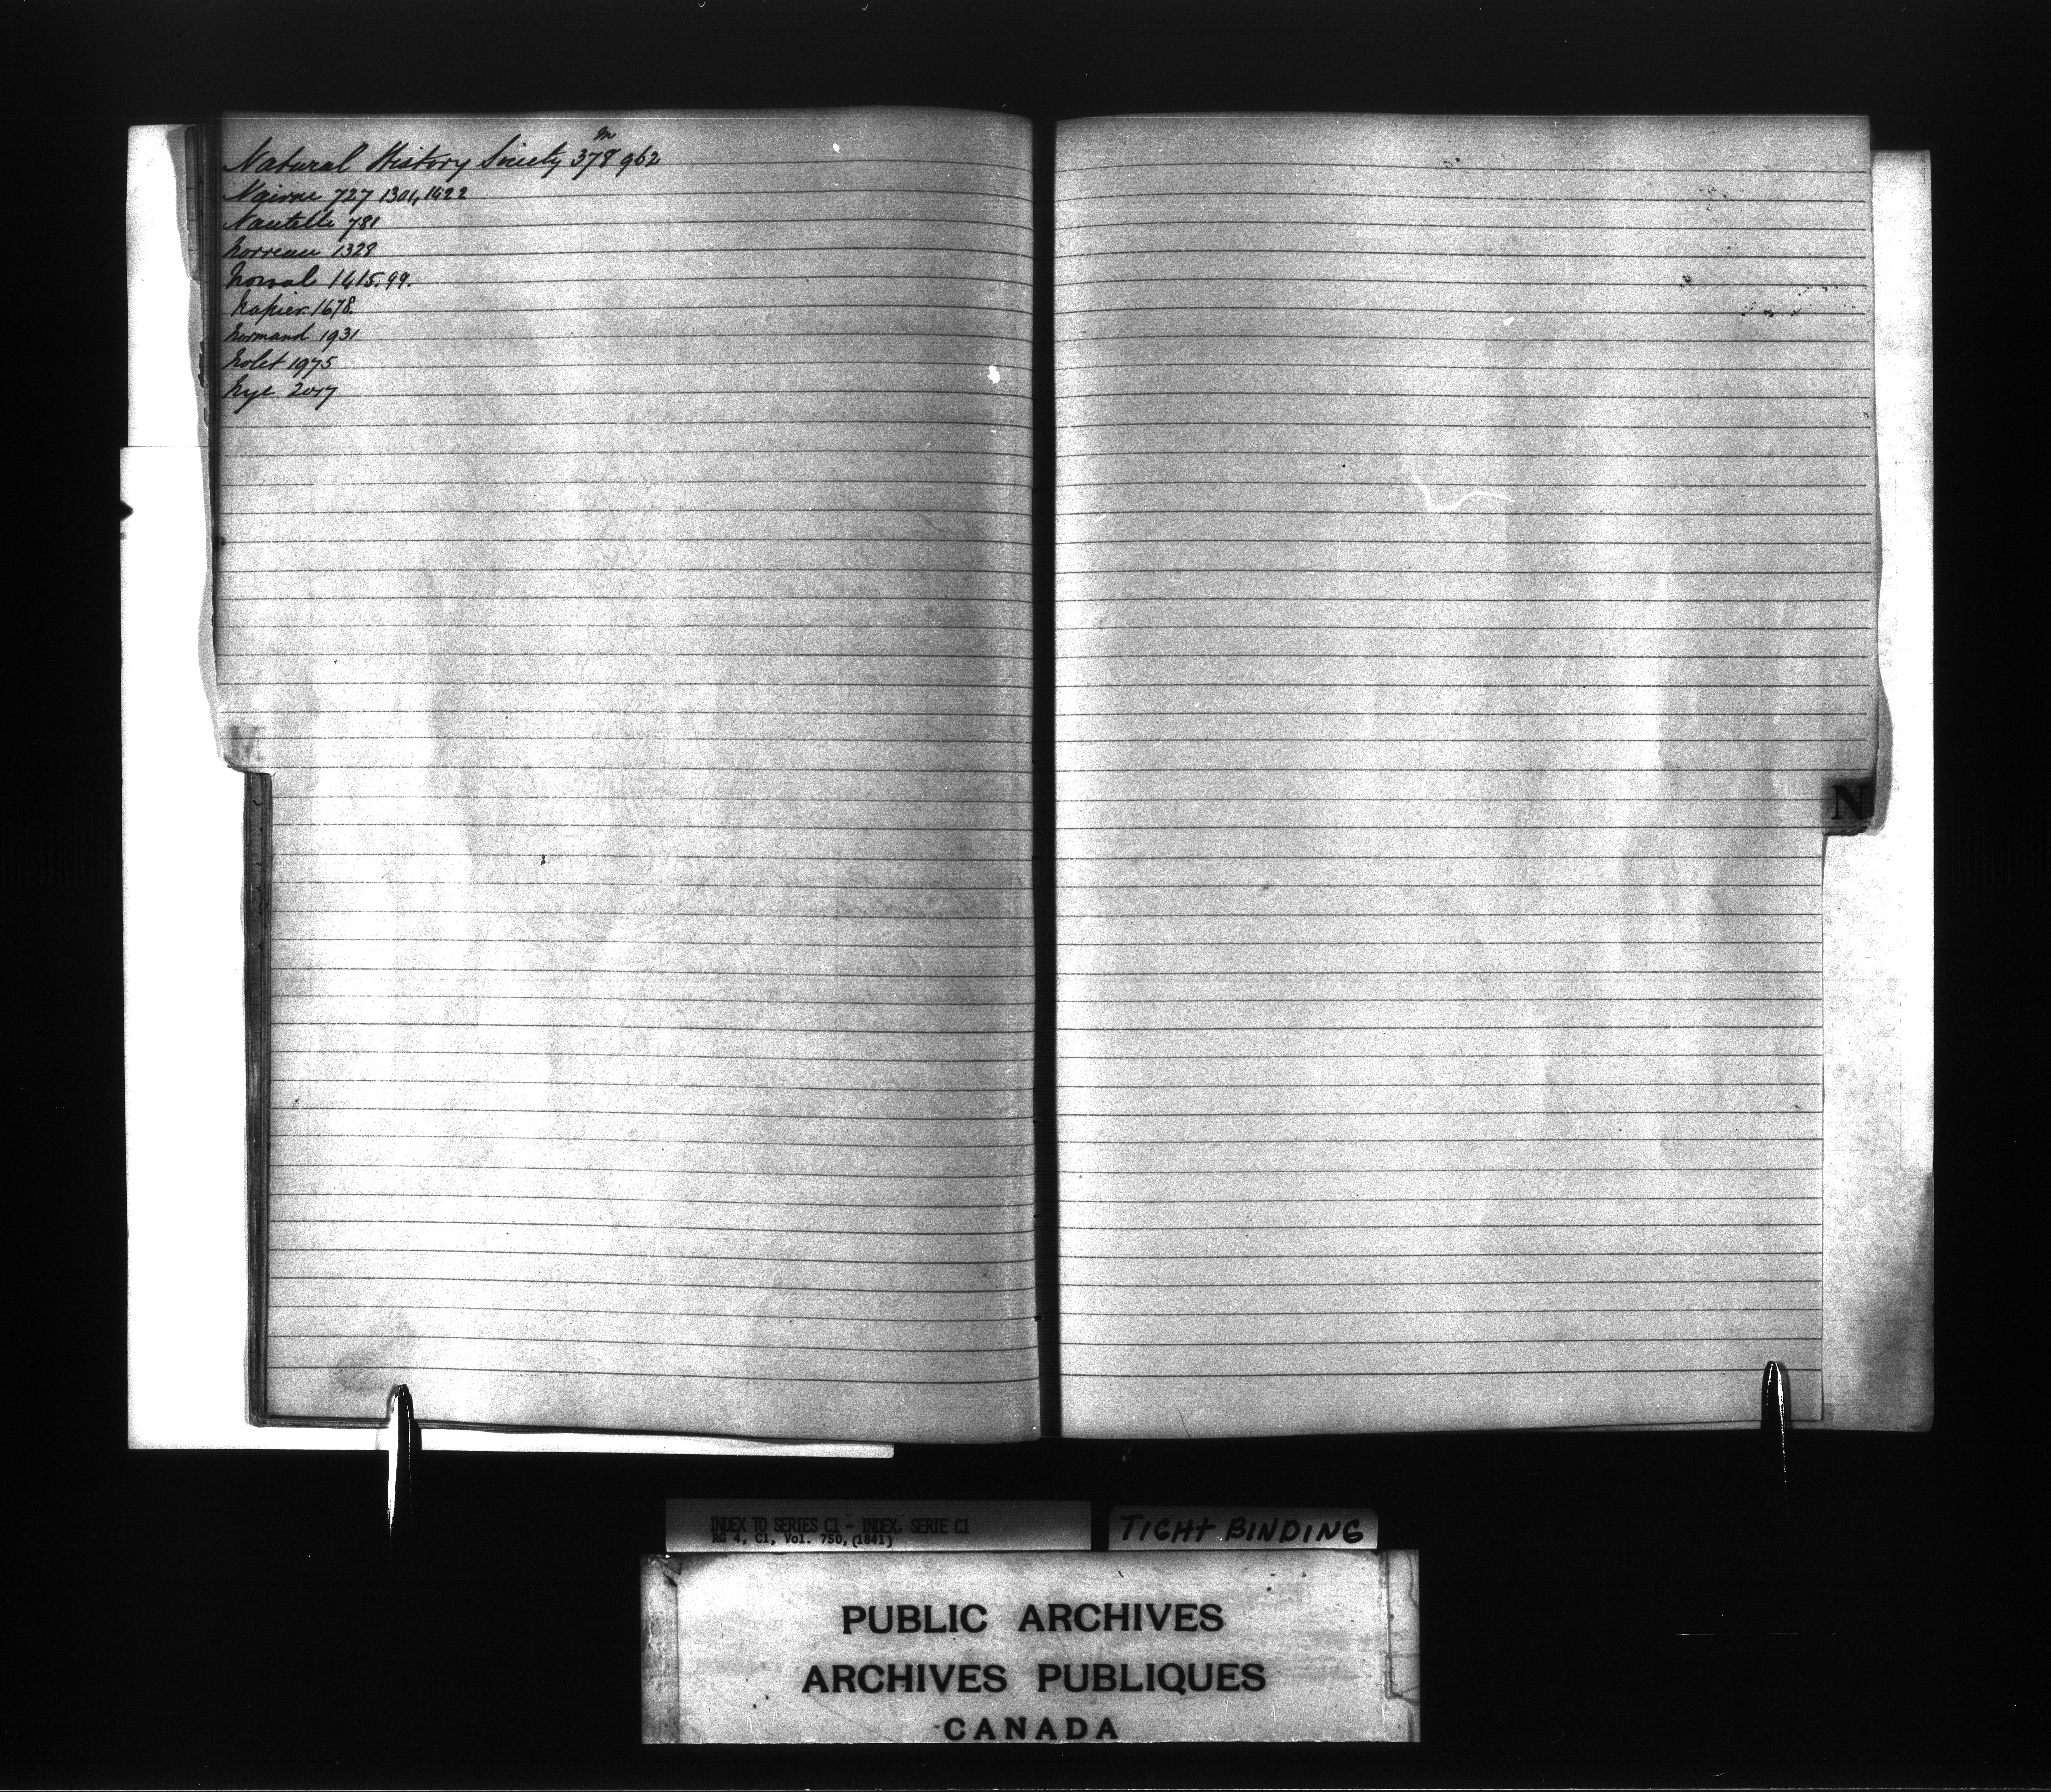 m
Natural History Society 378 962
Nairne 727 1304, 1422
Nautelle 781
Norreau 1328
Norval 1415. 99.
Napier 1678.
Normand 1931
Nolet 1975
Nye 2017
M
N
INDEX TO SERIES C1 - INDEX, SERIE C1
RG 4, C1, Vol. 750, (1841)
TIGHT BINDING
PUBLIC ARCHIVES
ARCHIVES PUBLIQUES
CANADA